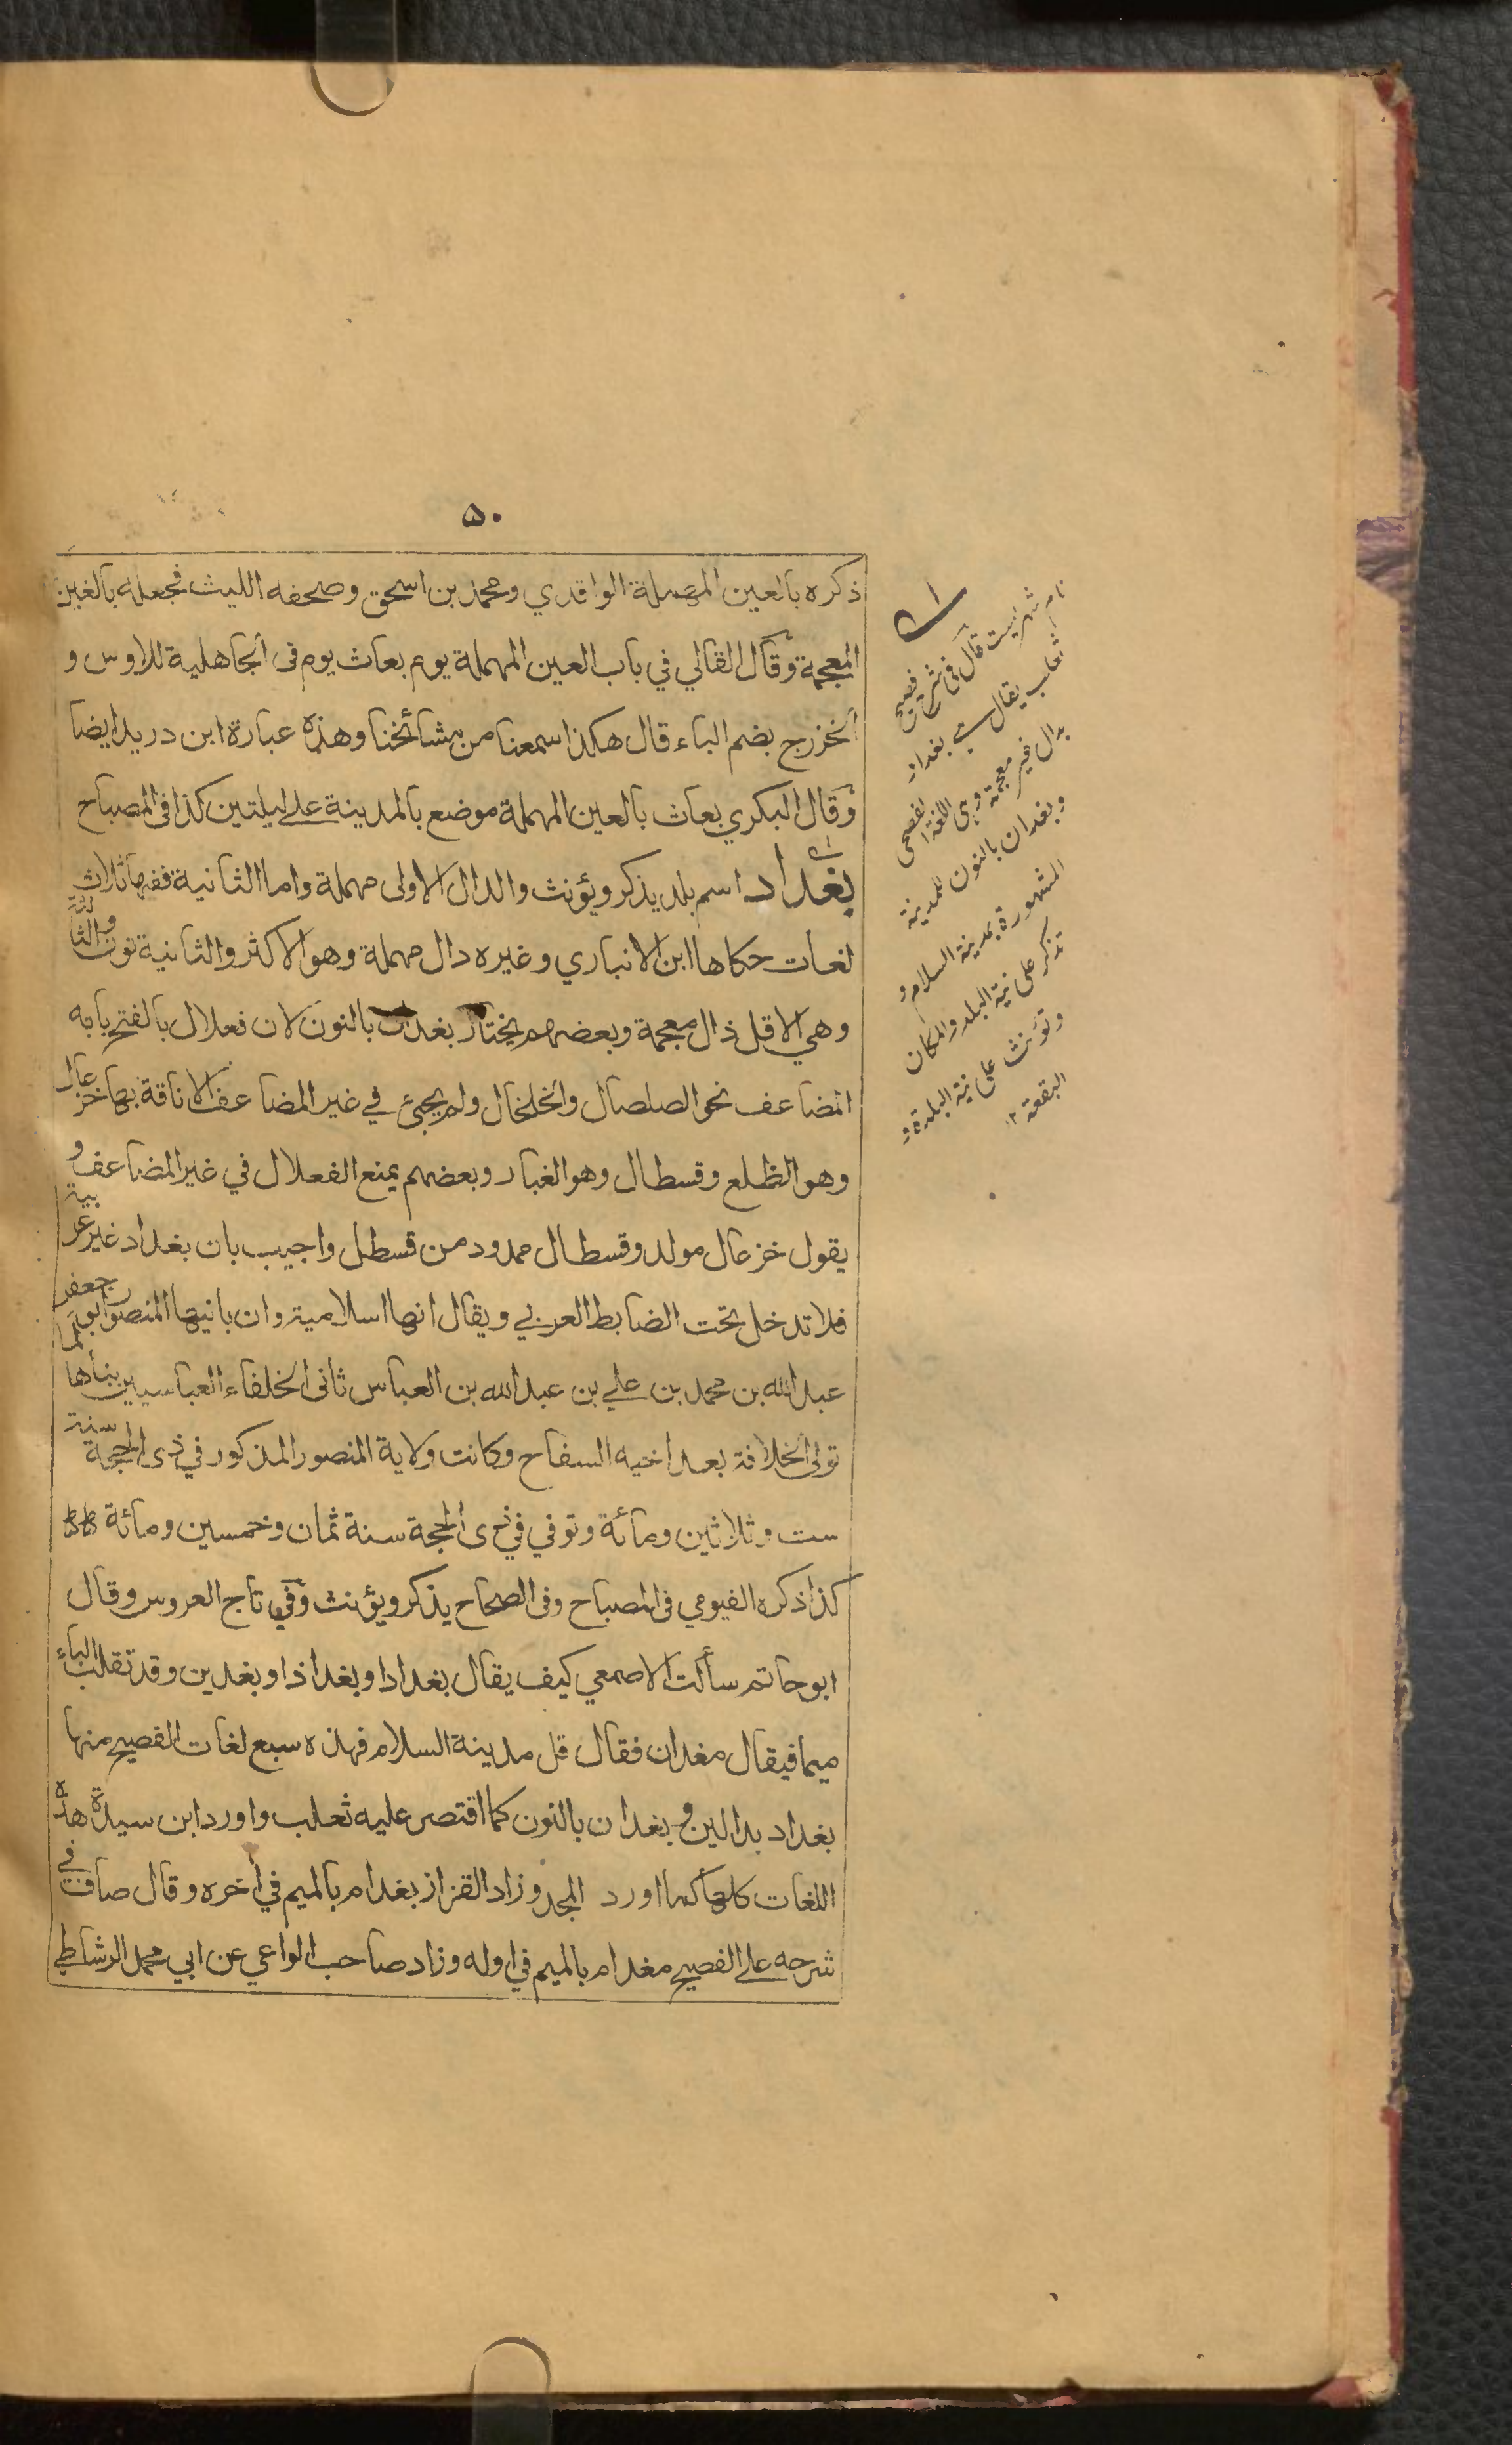 ۵۰
ذكره بالعين المهملة الواقدي ومحمد بن اسحق وصحفه الليث فجعله بالغين
المعجمة وقال القالي في باب العين المهملة يوم بعاث يوم فى الجاهلية للاوس و
الخزرج بضم الباء قال هكذا سمعنا من مشائخنا وهذه عبارة ابن دريد ايضا
وقال البكري بعاث بالعين المهملة موضع بالمدينة على ليلتين كذا فى المصباح
بغداد اسم بلد يذكر ويؤنث والدال الاولى مهملة واما الثانية ففيها ثلاث
لغات حكاها ابن الانباري وغيره دال مهملة وهو الاكثر والثانية نون والثالثة
وهي الاقل ذال معجمة وبعضهم يختار بغدان بالنون لان فعلال بالفتح بابه
المضاعف نحو الصلصال والخلخال ولم يجئ في غير المضاعف الا ناقة بها خزعال
وهو الظلع وقسطال وهو الغبار وبعضهم يمنع الفعلال في غير المضاعف و
يقول خزعال مولد وقسطال ممدود من قسطل واجيب بان بغداد غير عربية
فلا تدخل تحت الضابط العربي ويقال انها اسلامية وان بانيها المنصور ابو جعفر
عبد الله بن محمد بن علي بن عبد الله بن العباس ثانى الخلفاء العباسيين بناها لما
تولى الخلافة بعد اخيه السفاح وكانت ولاية المنصور المذكور في ذى الحجة سنة
ست وثلاثين ومائة وتوفي في ذى الحجة سنة ثمان وخمسين ومائة
كذا ذكره الفيومي فى المصباح وفى الصحاح يذكر ويؤنث وفي تاج العروس وقال
ابو حاتم سألت الاصمعي كيف يقال بغداد او بغداذ او بغدين وقد تقلب الباء
ميما فيقال مغدان فقال قل مدينة السلام فهذه سبع لغات الفصيح منها
بغداد بدالين و بغدان بالنون كما اقتصر عليه ثعلب واورد ابن سيدة هذه
اللغات كلها كما اورد المجد وزاد القزاز بغدام بالميم في أخره وقال صاف في
شرحه على الفصيح مغدام بالميم في اوله وزاد صاحب الواعي عن ابي محمد الرشاطي
نام شهريست قال فى شرح فصيح
ثعلب يقال هي بغداد
بدال غير معجمة وهي اللغة الفصحى
وبغدان بالنون للمدينة
المشهورة بمدينة السلام و
تذكر على نية البلد والمكان
وتؤنث على نية البلدة و
البقعة ١٢